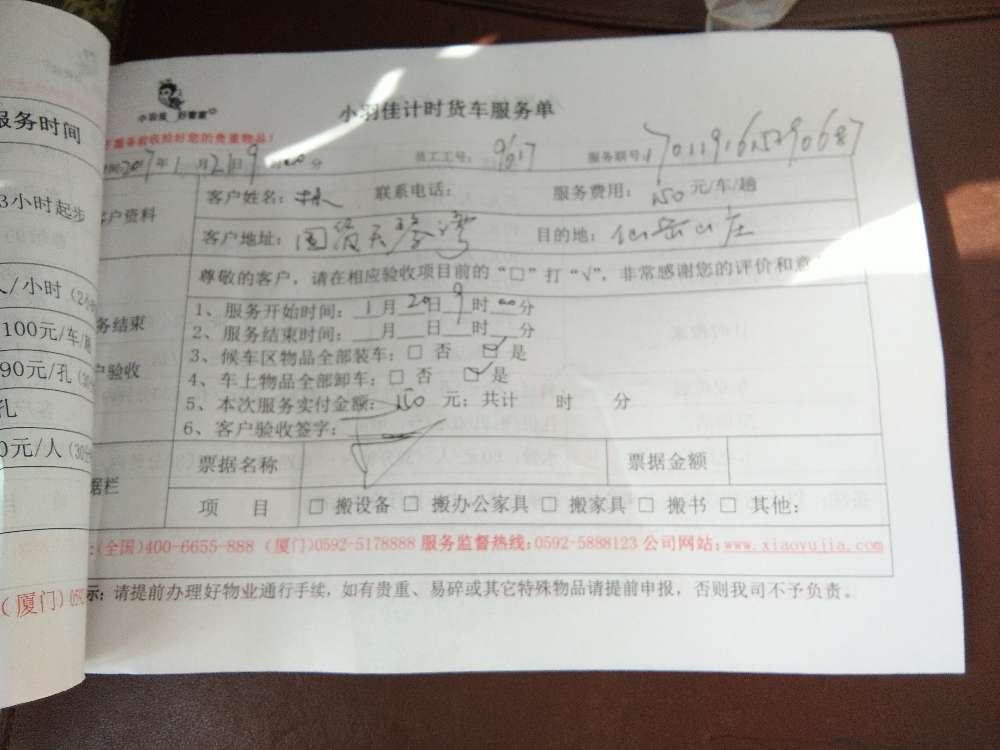 服务时间
3小时起步
人/小时（2小
100元/车/趟
90元/孔（30
孔
0元/人（30分
（厦门）059
小羽佳 好管家
小羽佳计时货车服务单
服务前收捡好您的贵重物品！
时间:2017年1月21日9时00分 员工工号: 9617 服务联号:
客户资料
客户姓名：林 联系电话： 服务费用：150元/车/趟
客户地址：国贸天琴湾 目的地：仙岳山庄
尊敬的客户，请在相应验收项目前的“□”打“√”，非常感谢您的评价和意
务结束
户验收
1、服务开始时间：1月20日9时00分
2、服务结束时间：__月__日__时__分
3、候车区物品全部装车：□ 否 ☑ 是
4、车上物品全部卸车：□ 否 ☑ 是
5、本次服务实付金额：150 元；共计 时 分
6、客户验收签字：
据栏
票据名称 票据金额
项 目 □ 搬设备 □ 搬办公家具 □ 搬家具 □ 搬书 □ 其他：
:(全国)400-6655-888 (厦门)0592-5178888 服务监督热线:0592-5888123 公司网站:www.xiaoyujia.com
示：请提前办理好物业通行手续，如有贵重、易碎或其它特殊物品请提前申报，否则我司不予负责。